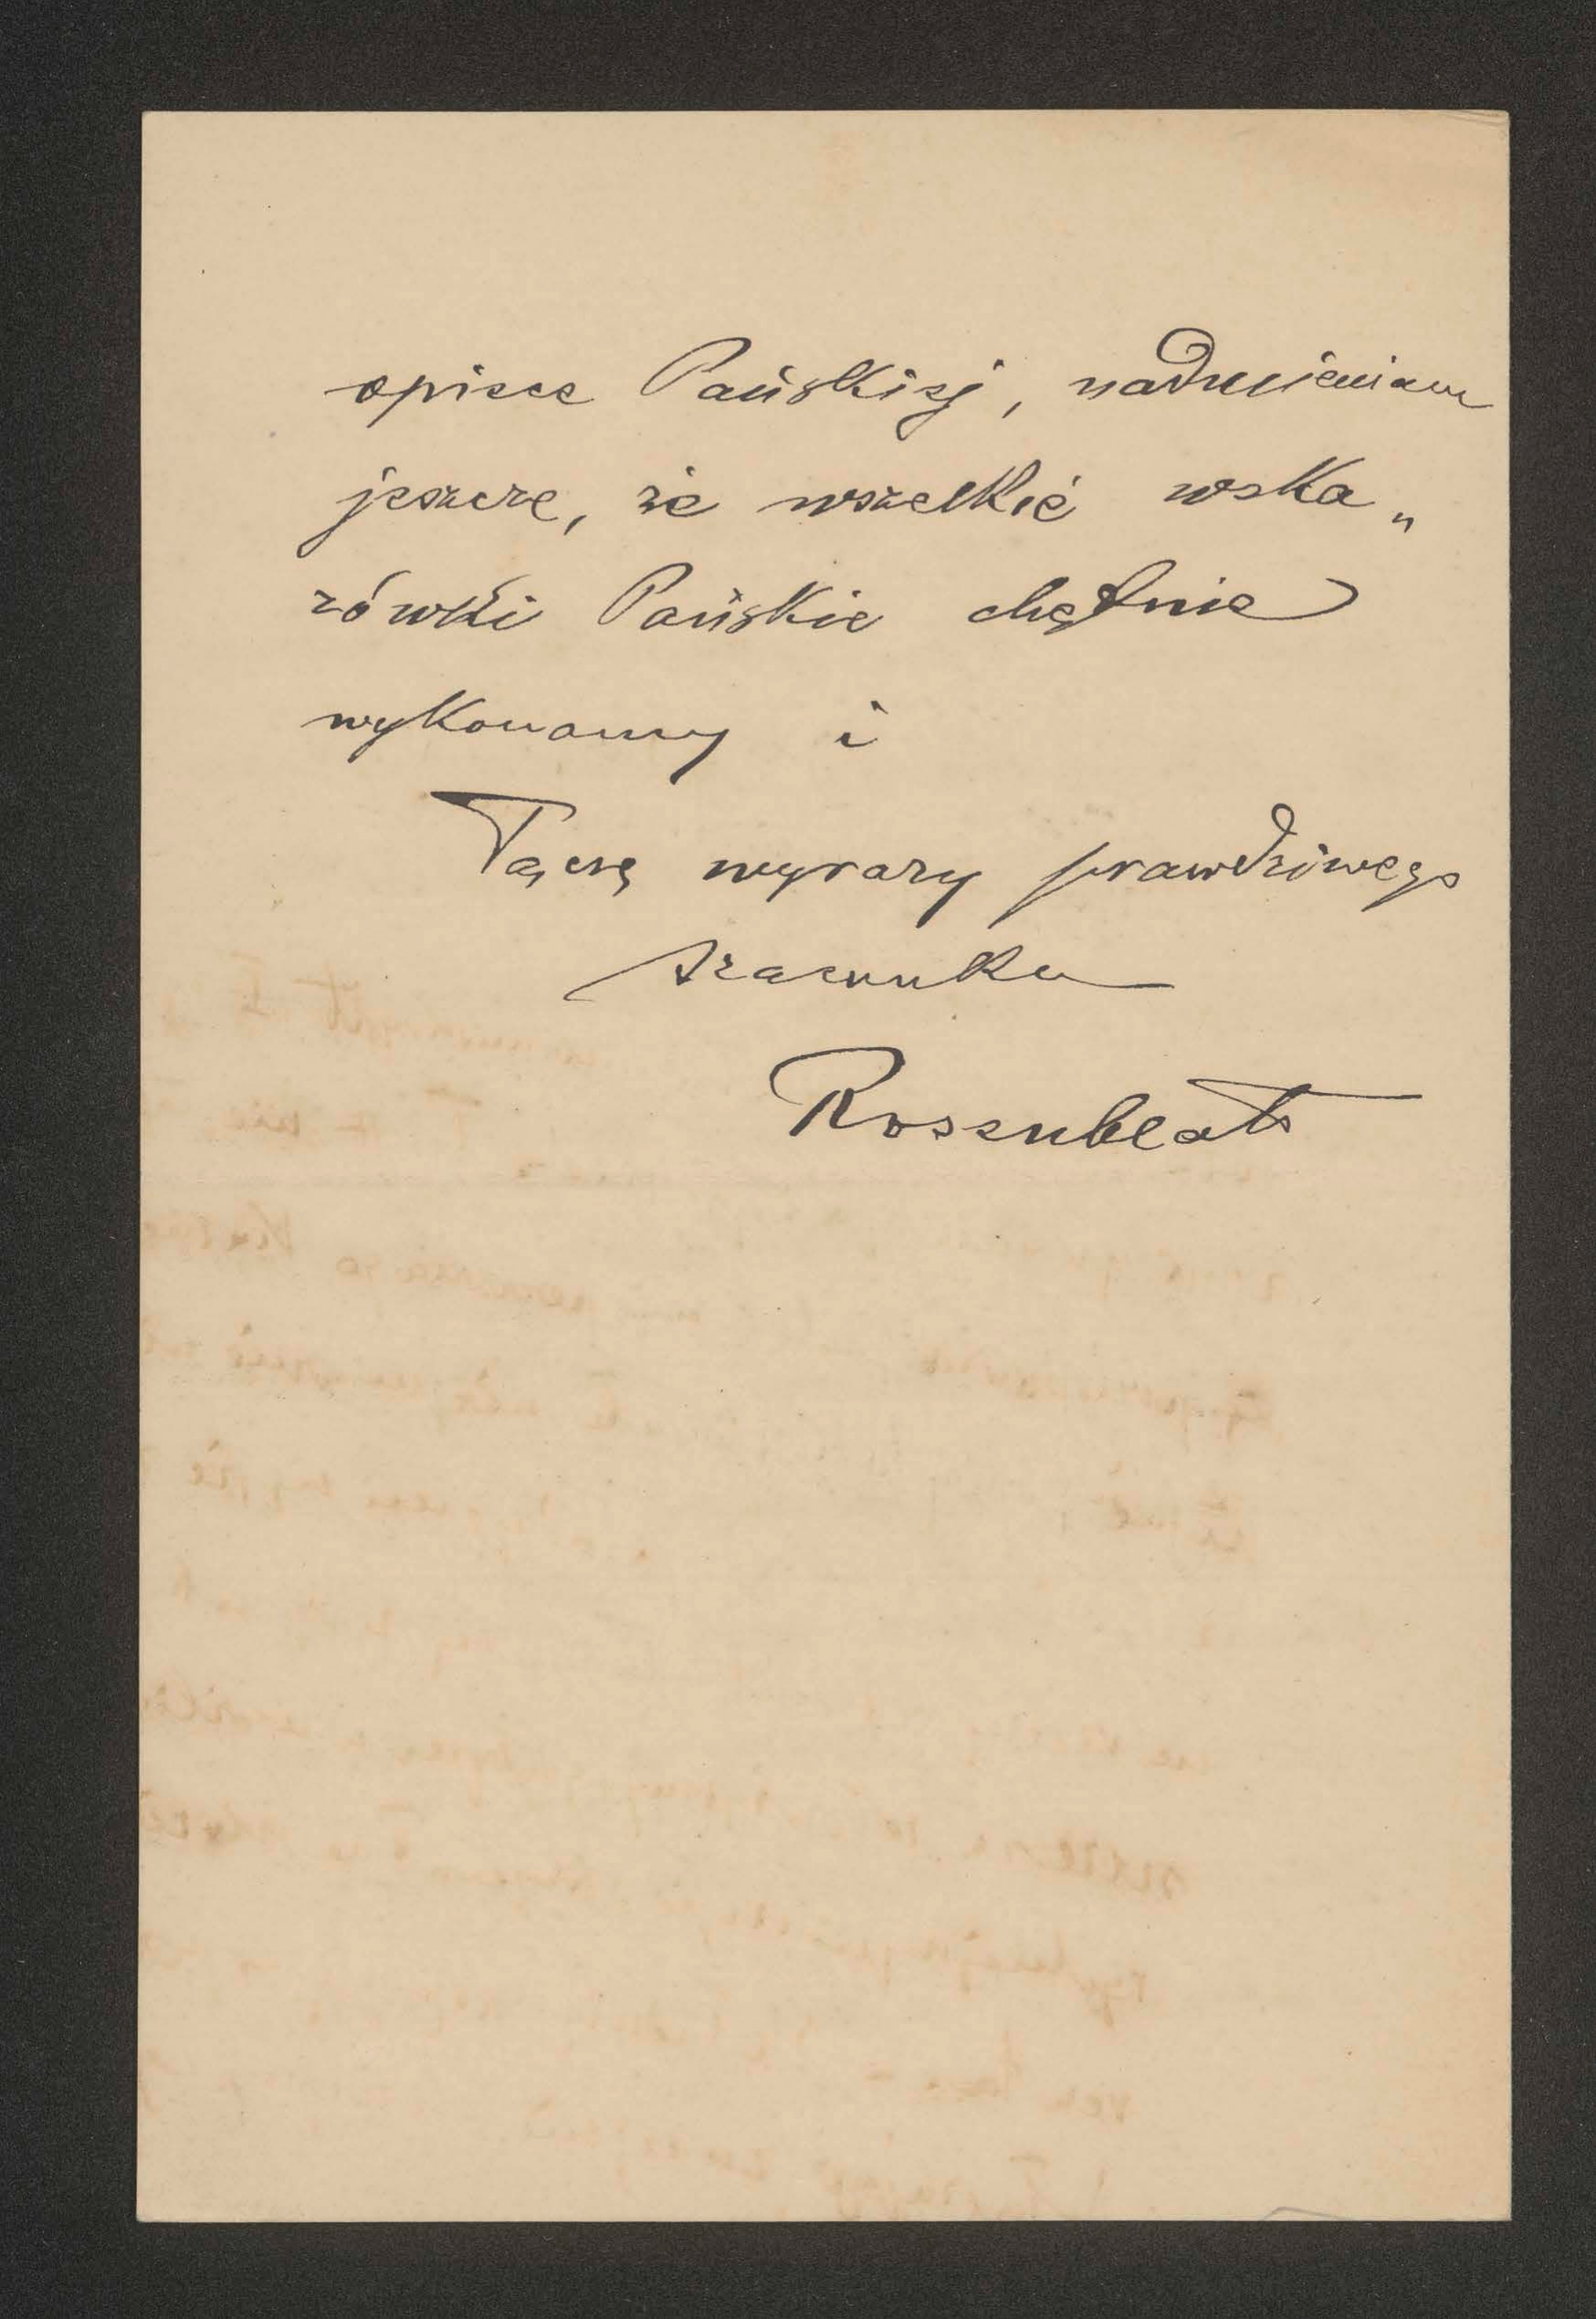 opiece Pańskiej, nadmieniam
jeszcze, że wszelkie wska„
zówki Pańskie chętnie
wykonamy i
Łączę wyrazy prawdziwego
szacunku
Rosenblatt